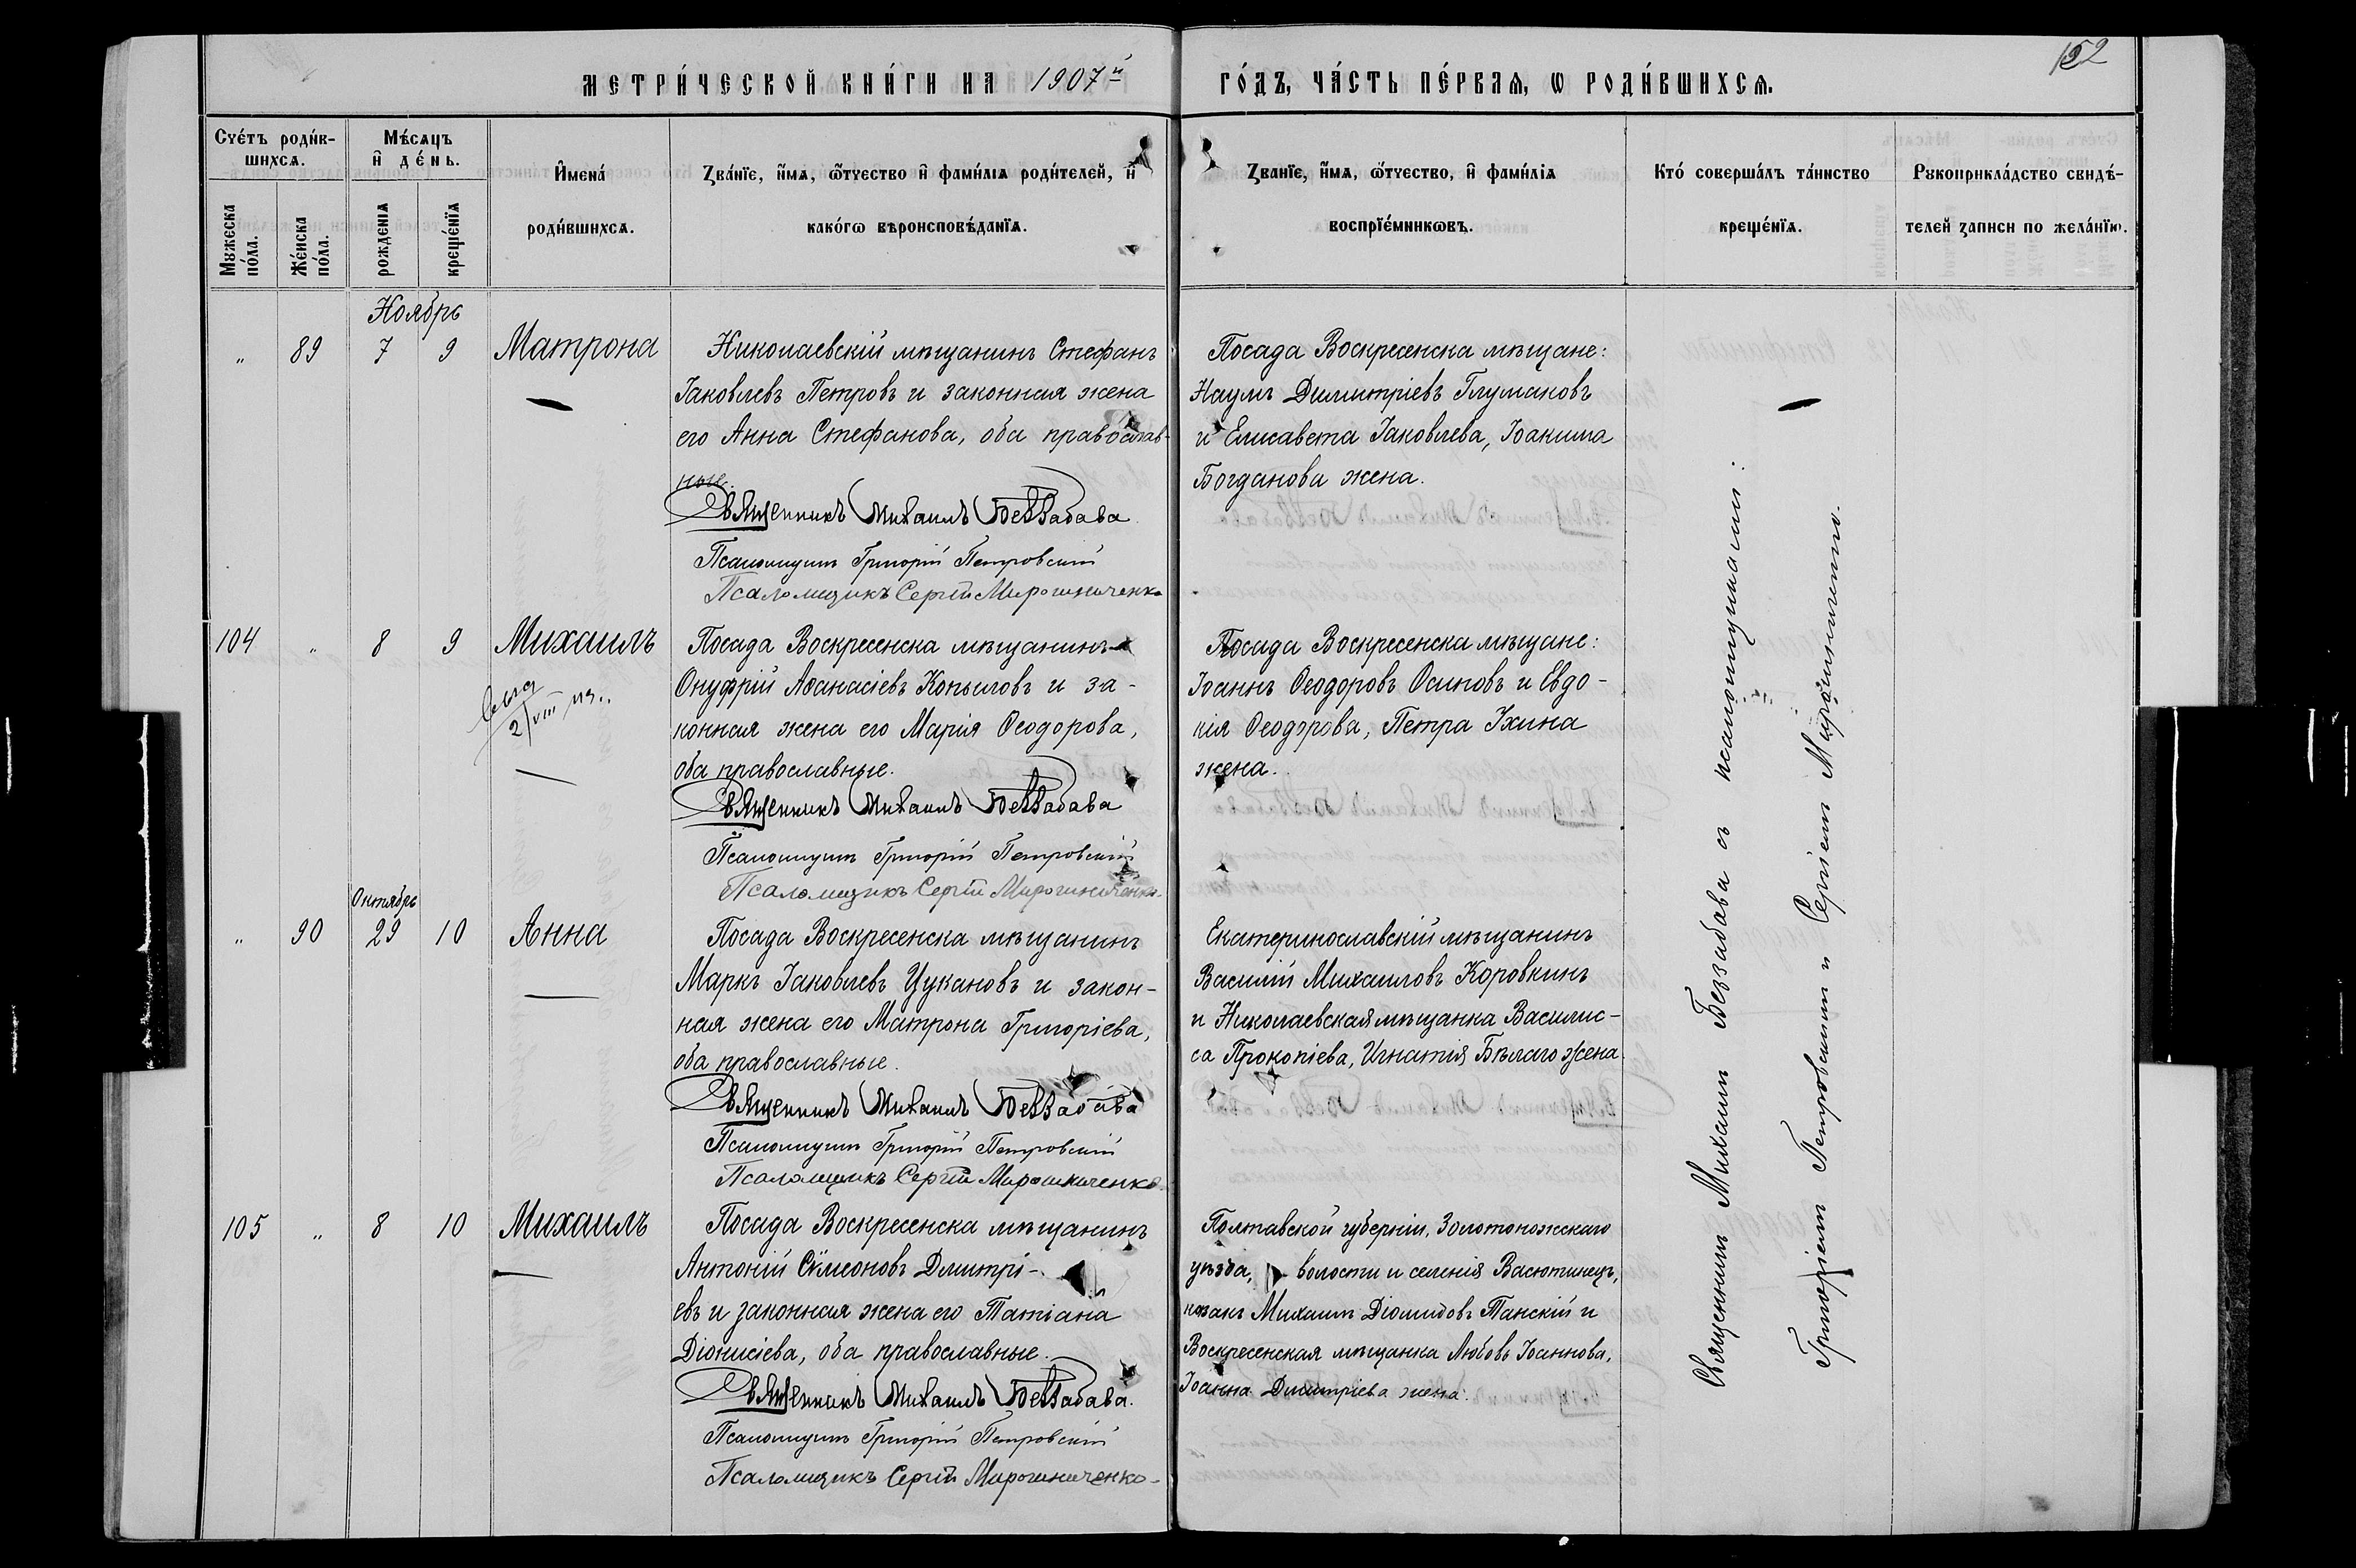 152
МЕТРИ́ЧЕСКОЙ КНИ́ГИ НА 1907й ГО́ДЪ, ЧА́СТЬ ПЕ́РВАѦ, Ѡ РОДИ́ВШИХСѦ.
Счетъ роди́в-
шихсѧ.
Мꙋжеска
по́ла.
Же́нска
по́ла.
Мѣ́сѧцъ
и҆ де́нь.
рожденїѧ
креще́нїѧ
И҆мена́
роди́вшихсѧ.
Зва́нїе, и҆́мѧ, ѻ҆́тчество и҆ фами́лїѧ роди́телей, и҆
како́гѡ вѣроисповѣ́данїѧ.
Зва́нїе, и҆́мѧ, ѻ҆́тчество, и҆ фами́лїѧ
воспрїе́мникѡвъ.
Кто́ соверша́лъ та́инство
креще́нїѧ.
Рꙋкоприкла́дство свидѣ́-
телей записи по жела́нїю.
Ноябрь
" 89 7 9 Матрона
Николаевскій мѣщанинъ Стефанъ
Іаковлевъ Петровъ и законная жена
его Анна Стефанова, оба православ-
ные.
Священникъ Михаилъ Беззабава.
Псаломщикъ Григорій Петровскій
Псаломщикъ Сергій Мирошниченко
Посада Воскресенска мѣщане:
Наумъ Димитріевъ Глумаковъ
и Елисавета Іаковлева, Іоакима
Богданова жена.
104 " 8 9 Михаилъ
2/VIII
Посада Воскресенска мѣщанинъ
Онуфрій Аѳанасіевъ Копыловъ и за-
конная жена его Марія Ѳеодорова,
оба православные.
Священникъ Михаилъ Беззабава
Псаломщикъ Григорій Петровскій
Псаломщикъ Сергій Мирошниченко.
Посада Воскресенска мѣщане:
Іоаннъ Ѳеодоровъ Осиповъ и Евдо-
кія Ѳеодорова, Петра Ихина
жена.
Октябрь
" 90 29 10 Анна
Посада Воскресенска мѣщанинъ
Маркъ Іаковлевъ Цукановъ и закон-
ная жена его Матрона Григоріева,
оба православные.
Священникъ Михаилъ Беззабава
Псаломщикъ Григорій Петровскій
Псаломщикъ Сергій Мирошниченко
Екатеринославскій мѣщанинъ
Василій Михаиловъ Коровкинъ
и Николаевская мѣщанка Василис-
са Прокопіева, Игнатія Бѣлаго жена.
105 " 8 10 Михаилъ
Посада Воскресенска мѣщанинъ
Антоній Сѵмеоновъ Дмитрі-
евъ и законная жена его Татіана
Діонисіева, оба православные.
Священникъ Михаилъ Беззабава.
Псаломщикъ Григорій Петровскій
Псаломщикъ Сергій Мирошниченко
Полтавской губерніи, Золотоножскаго
уѣзда, волости и селенія Васютинецъ,
козакъ Михаилъ Діомидовъ Танскій и
Воскресенская мѣщанка Любовь Іоаннова,
Іоанна Димитріева жена.
Священникъ Михаилъ Беззабава съ псаломщиками:
Григоріемъ Петровскимъ и Сергіемъ Мирошниченко.